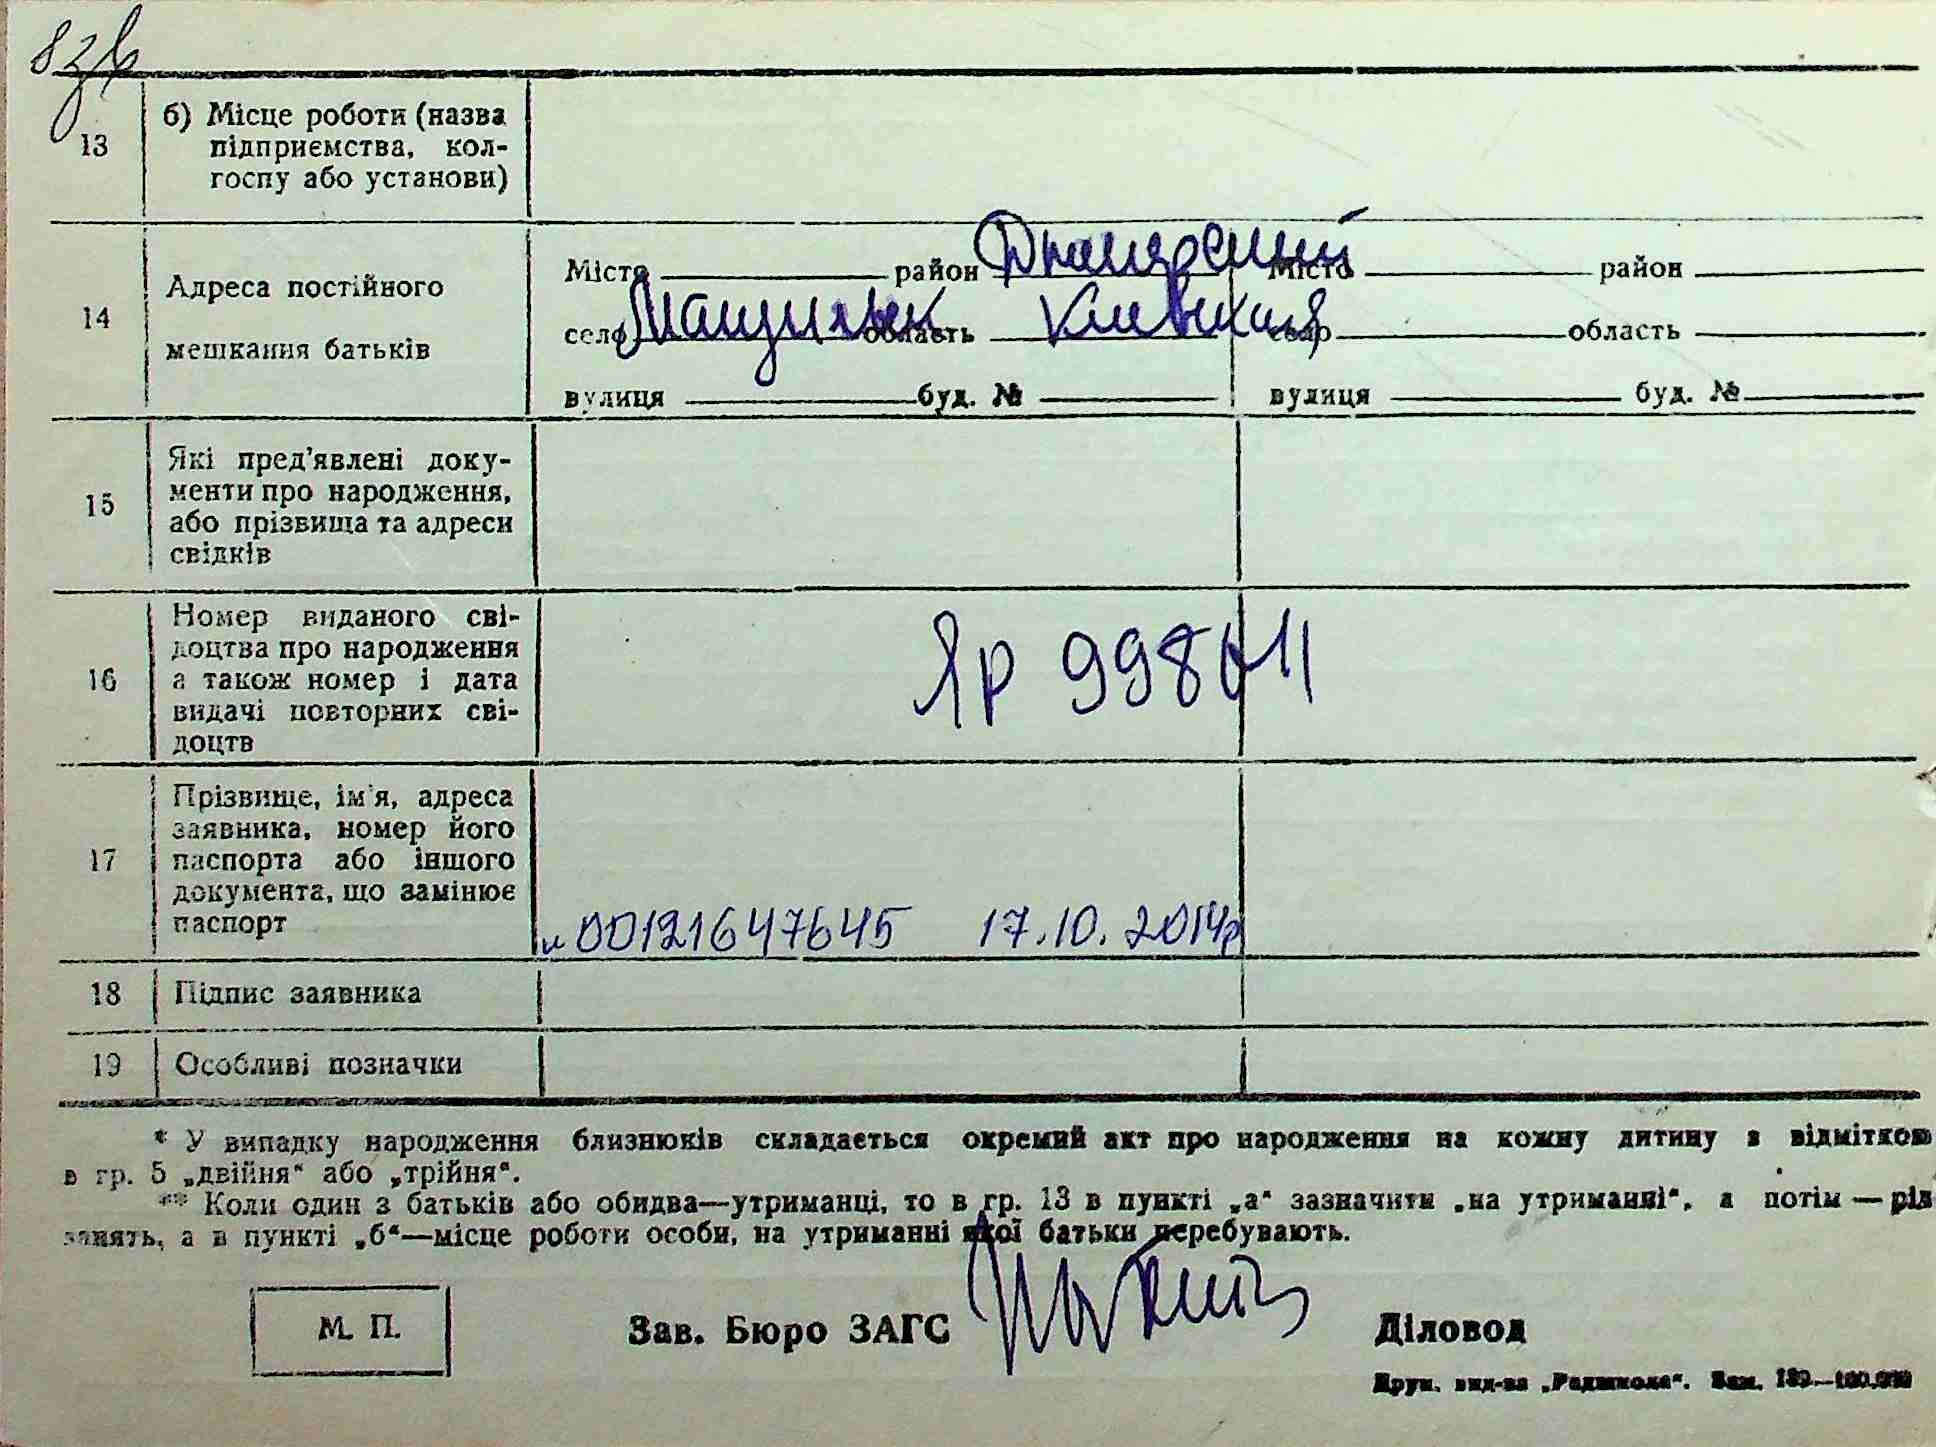 13 б) Місце роботи (назва
підприємства, кол-
госпу або установи)
14 Адреса постійного
мешкання батьків
Місто район Місто район
село область Київська село область
вулиця буд. № вулиця буд. №
15 Які пред'явлені доку-
менти про народження,
або прізвища та адреси
свідків
16 Номер виданого сві-
доцтва про народження
а також номер і дата
видачі повторних сві-
доцтв
ЯР
17 Прізвище, ім'я, адреса
заявника, номер його
паспорта або іншого
документа, що замінює
паспорт
00121647645 17.10.2014р
18 Підпис заявника
19 Особливі позначки
* У випадку народження близнюків складається окремий акт про народження на кожну дитину з відміткою
в гр. 5 „двійня“ або „трійня“.
** Коли один з батьків або обидва—утриманці, то в гр. 13 в пункті „а“ зазначити „на утриманні“, а потім — рід
занять, а в пункті „б“—місце роботи особи, на утриманні якої батьки перебувають.
М. П. Зав. Бюро ЗАГС Діловод
Друк. вид-ва „Радшкола“. Зам.